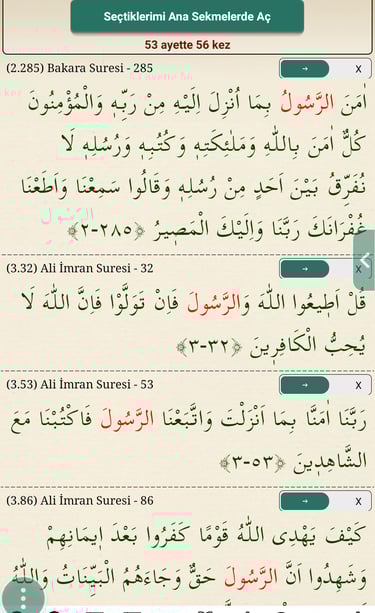 Seçtiklerimi Ana Sekmelerde Aç
53 ayette 56 kez
(2.285) Bakara Suresi - 285 → X
اٰمَنَ الرَّسُولُ بِمَٓا اُنْزِلَ اِلَيْهِ مِنْ رَبِّه۪ وَالْمُؤْمِنُونَ
كُلٌّ اٰمَنَ بِاللّٰهِ وَمَلٰٓئِكَتِه۪ وَكُتُبِه۪ وَرُسُلِه۪ لَا
نُفَرِّقُ بَيْنَ اَحَدٍ مِنْ رُسُلِه۪ وَقَالُوا سَمِعْنَا وَاَطَعْنَا
غُفْرَانَكَ رَبَّنَا وَاِلَيْكَ الْمَص۪يرُ ﴿٢٨٥-٢﴾
(3.32) Ali İmran Suresi - 32 → X
قُلْ اَط۪يعُوا اللّٰهَ وَالرَّسُولَ فَاِنْ تَوَلَّوْا فَاِنَّ اللّٰهَ لَا
يُحِبُّ الْكَافِر۪ينَ ﴿٣٢-٣﴾
(3.53) Ali İmran Suresi - 53 → X
رَبَّنَٓا اٰمَنَّا بِمَٓا اَنْزَلْتَ وَاتَّبَعْنَا الرَّسُولَ فَاكْتُبْنَا مَعَ
الشَّاهِد۪ينَ ﴿٥٣-٣﴾
(3.86) Ali İmran Suresi - 86 → X
كَيْفَ يَهْدِي اللّٰهُ قَوْمًا كَفَرُوا بَعْدَ ا۪يمَانِهِمْ
وَشَهِدُٓوا اَنَّ الرَّسُولَ حَقٌّ وَجَٓاءَهُمُ الْبَيِّنَاتُ وَاللّٰهُ